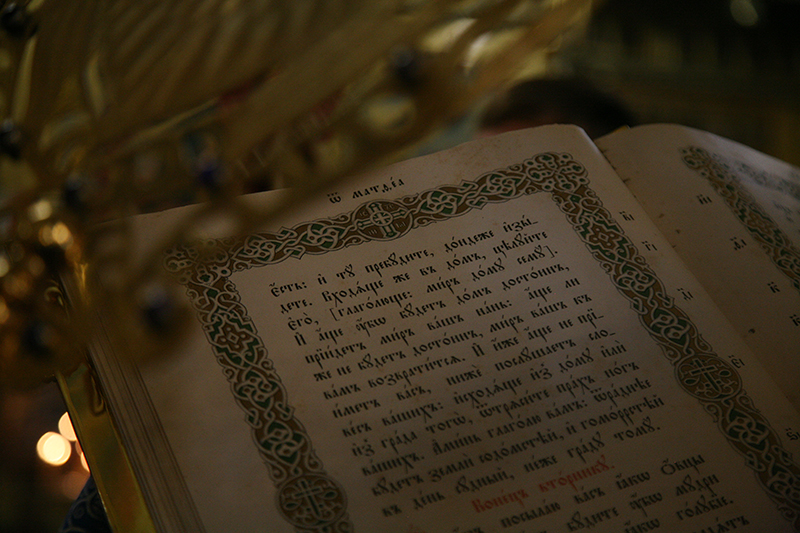 Ѿ матѳе́а
є҆́сть: и҆ тꙋ̀ пребꙋ́дите, до́ндеже и҆зы́-
дете. Входѧ́ще же въ до́мъ, цѣлꙋ́йте
є҆го̀, [глаго́люще: ми́ръ до́мꙋ семꙋ̀].
И҆ а҆́ще ᲂу҆́бѡ бꙋ́детъ до́мъ досто́инъ,
прїи́детъ ми́ръ ва́шъ на́нь: а҆́ще ли
же не бꙋ́детъ досто́инъ, ми́ръ ва́шъ къ
ва́мъ возврати́тсѧ. И҆ и҆́же а҆́ще не прї-
и́метъ ва́съ, нижѐ послꙋ́шаетъ сло-
ве́съ ва́шихъ: и҆сходѧ́ще и҆з̾ до́мꙋ и҆лѝ
и҆з̾ гра́да тогѡ̀, ѿтрѧси́те пра́хъ но́гъ
ва́шихъ. А҆ми́нь глаго́лю ва́мъ: ѿра́днѣе
бꙋ́детъ землѝ содо́мстѣй, и҆ гомо́ррстѣй
въ де́нь сꙋ́дный, не́же гра́дꙋ томꙋ̀.
Коне́цъ вто́рникꙋ.
посыла́ю ва́съ ꙗ҆́кѡ ѻ҆́вцы
бꙋ́дите ᲂу҆́бѡ мꙋ́дри
ꙗ҆́кѡ го́лꙋбїе.